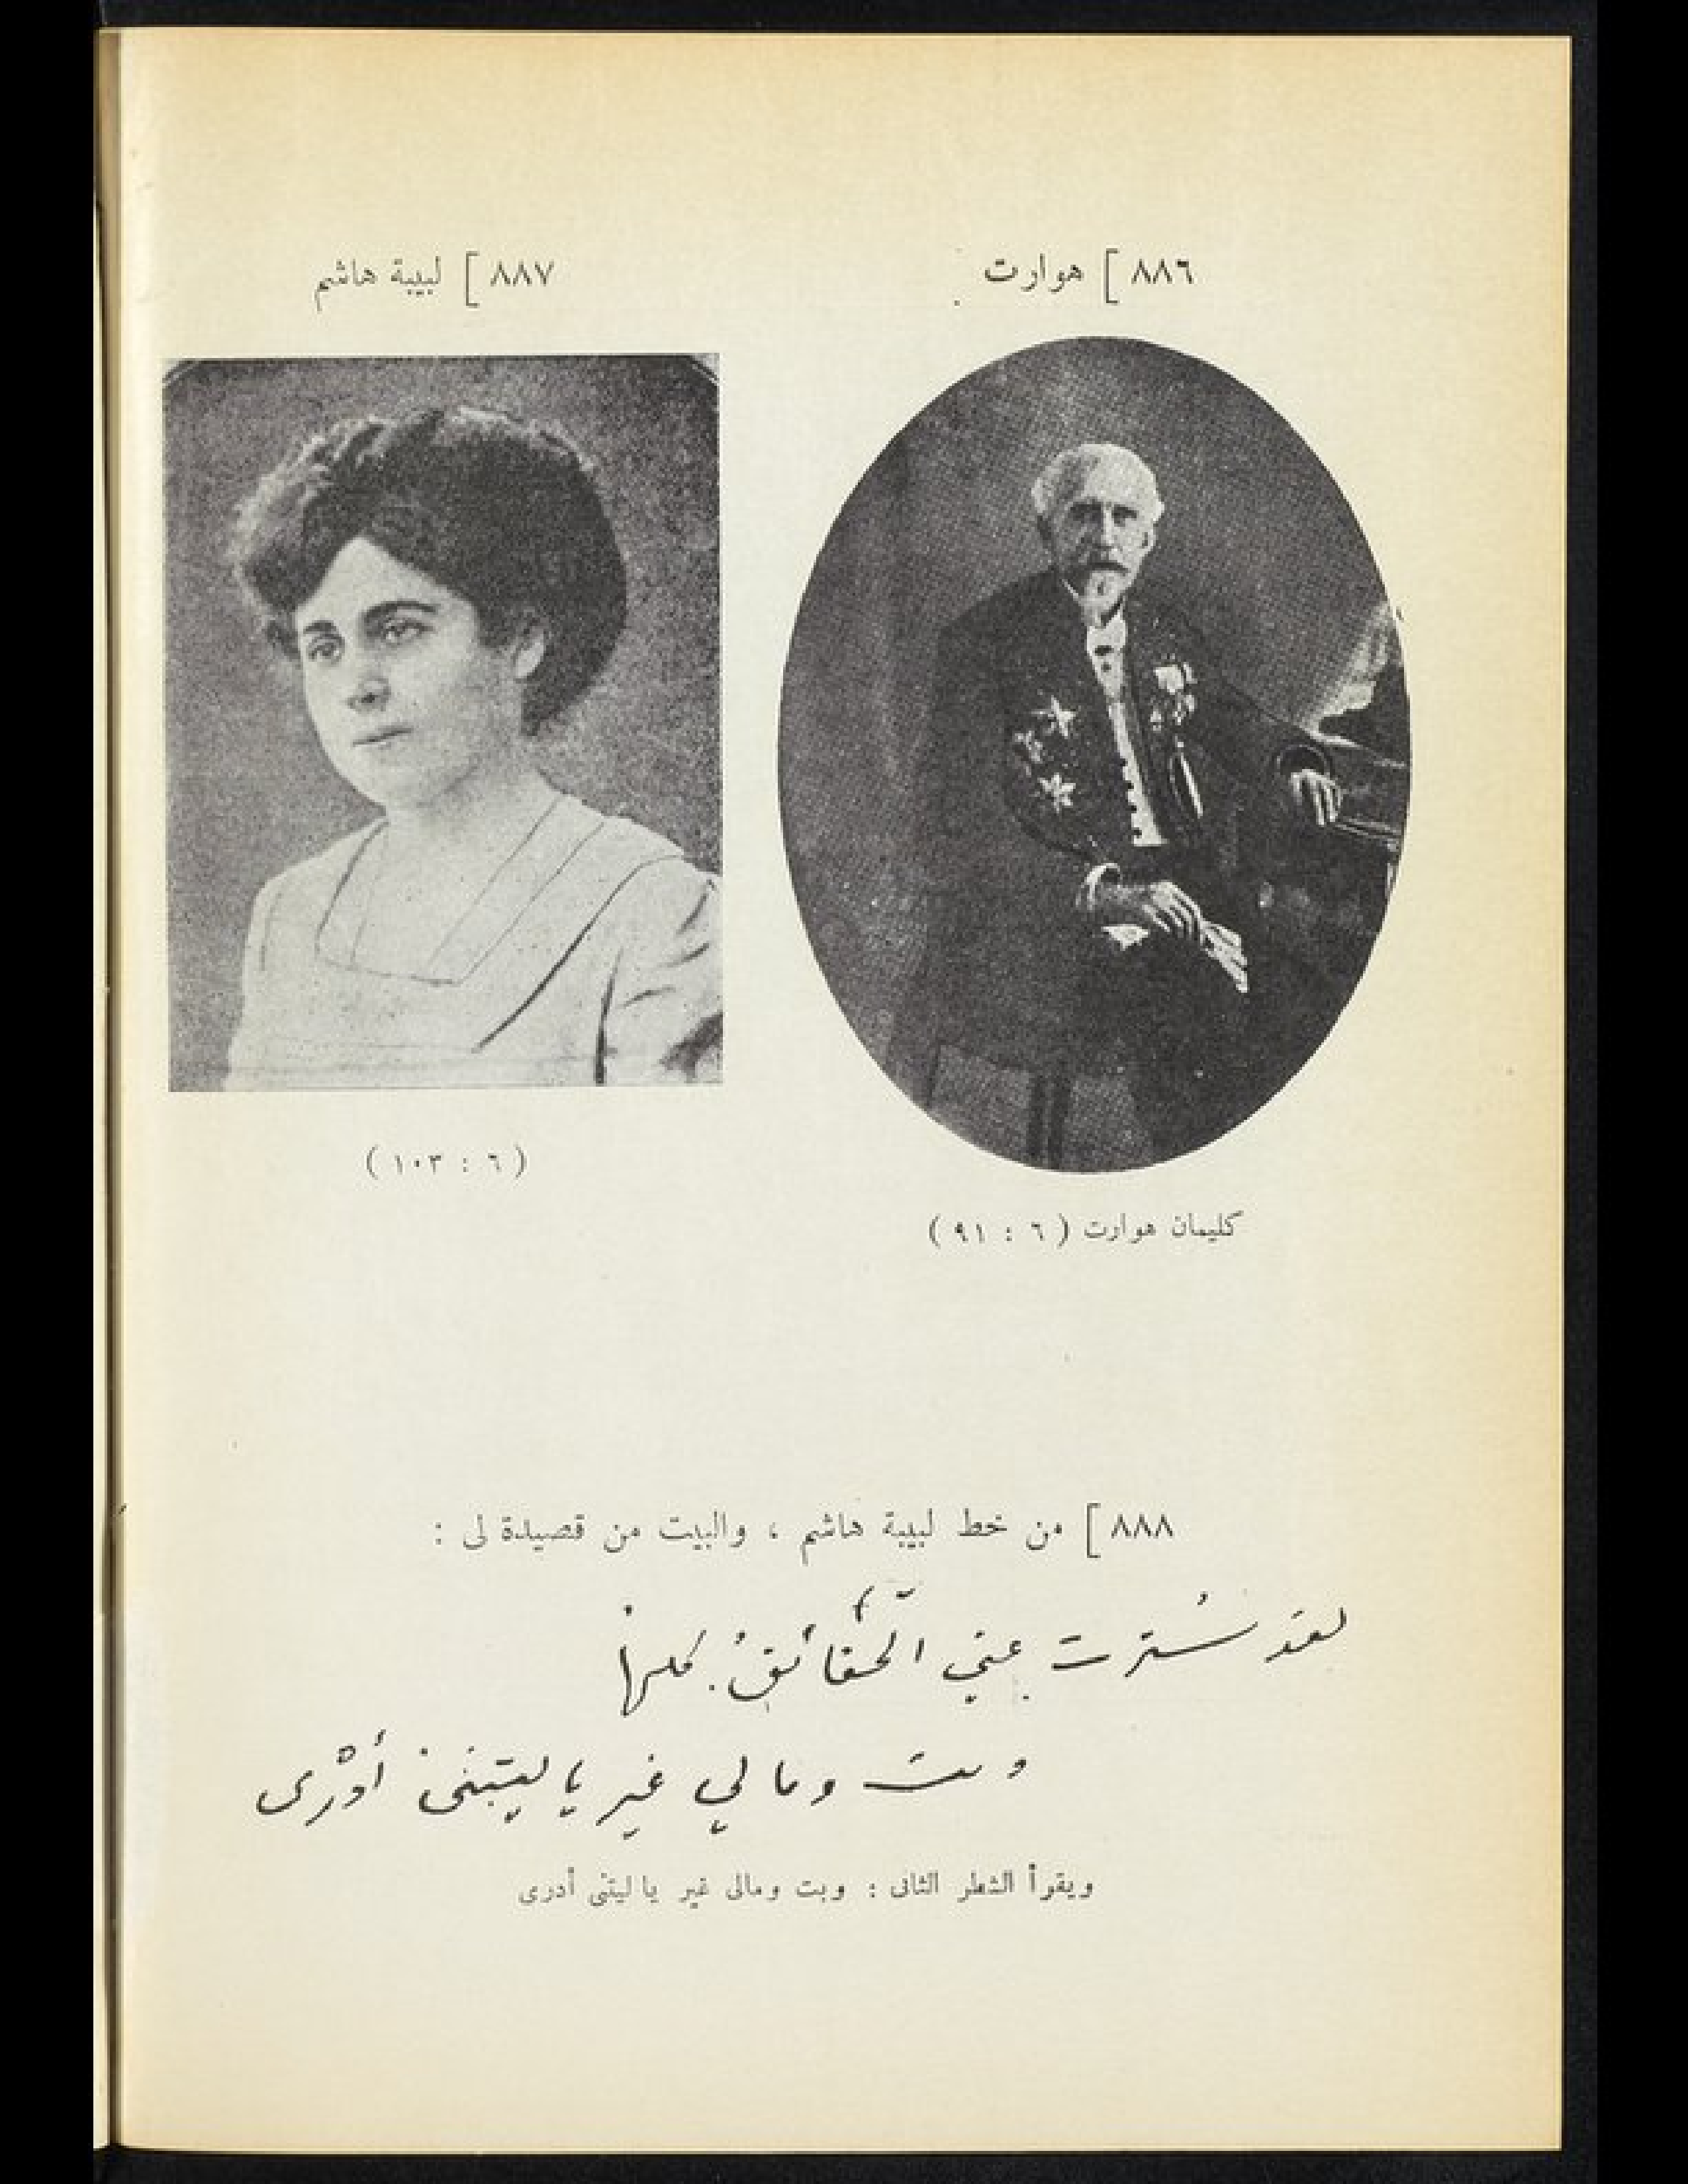 ٨٨٦ [ هوارت
٨٨٧ [ لبيبة هاشم
كليمان هوارت ( ٦ : ٩١ )
( ٦ : ١٠٣ )
٨٨٨ [ من خط لبيبة هاشم ، والبيت من قصيدة لى :
لقد سُترت عني الحقائقُ كلها
وبت وما لي غير يا ليتني أدْرى
ويقرأ الشطر الثانى : وبت ومالى غير يا ليتنى أدرى